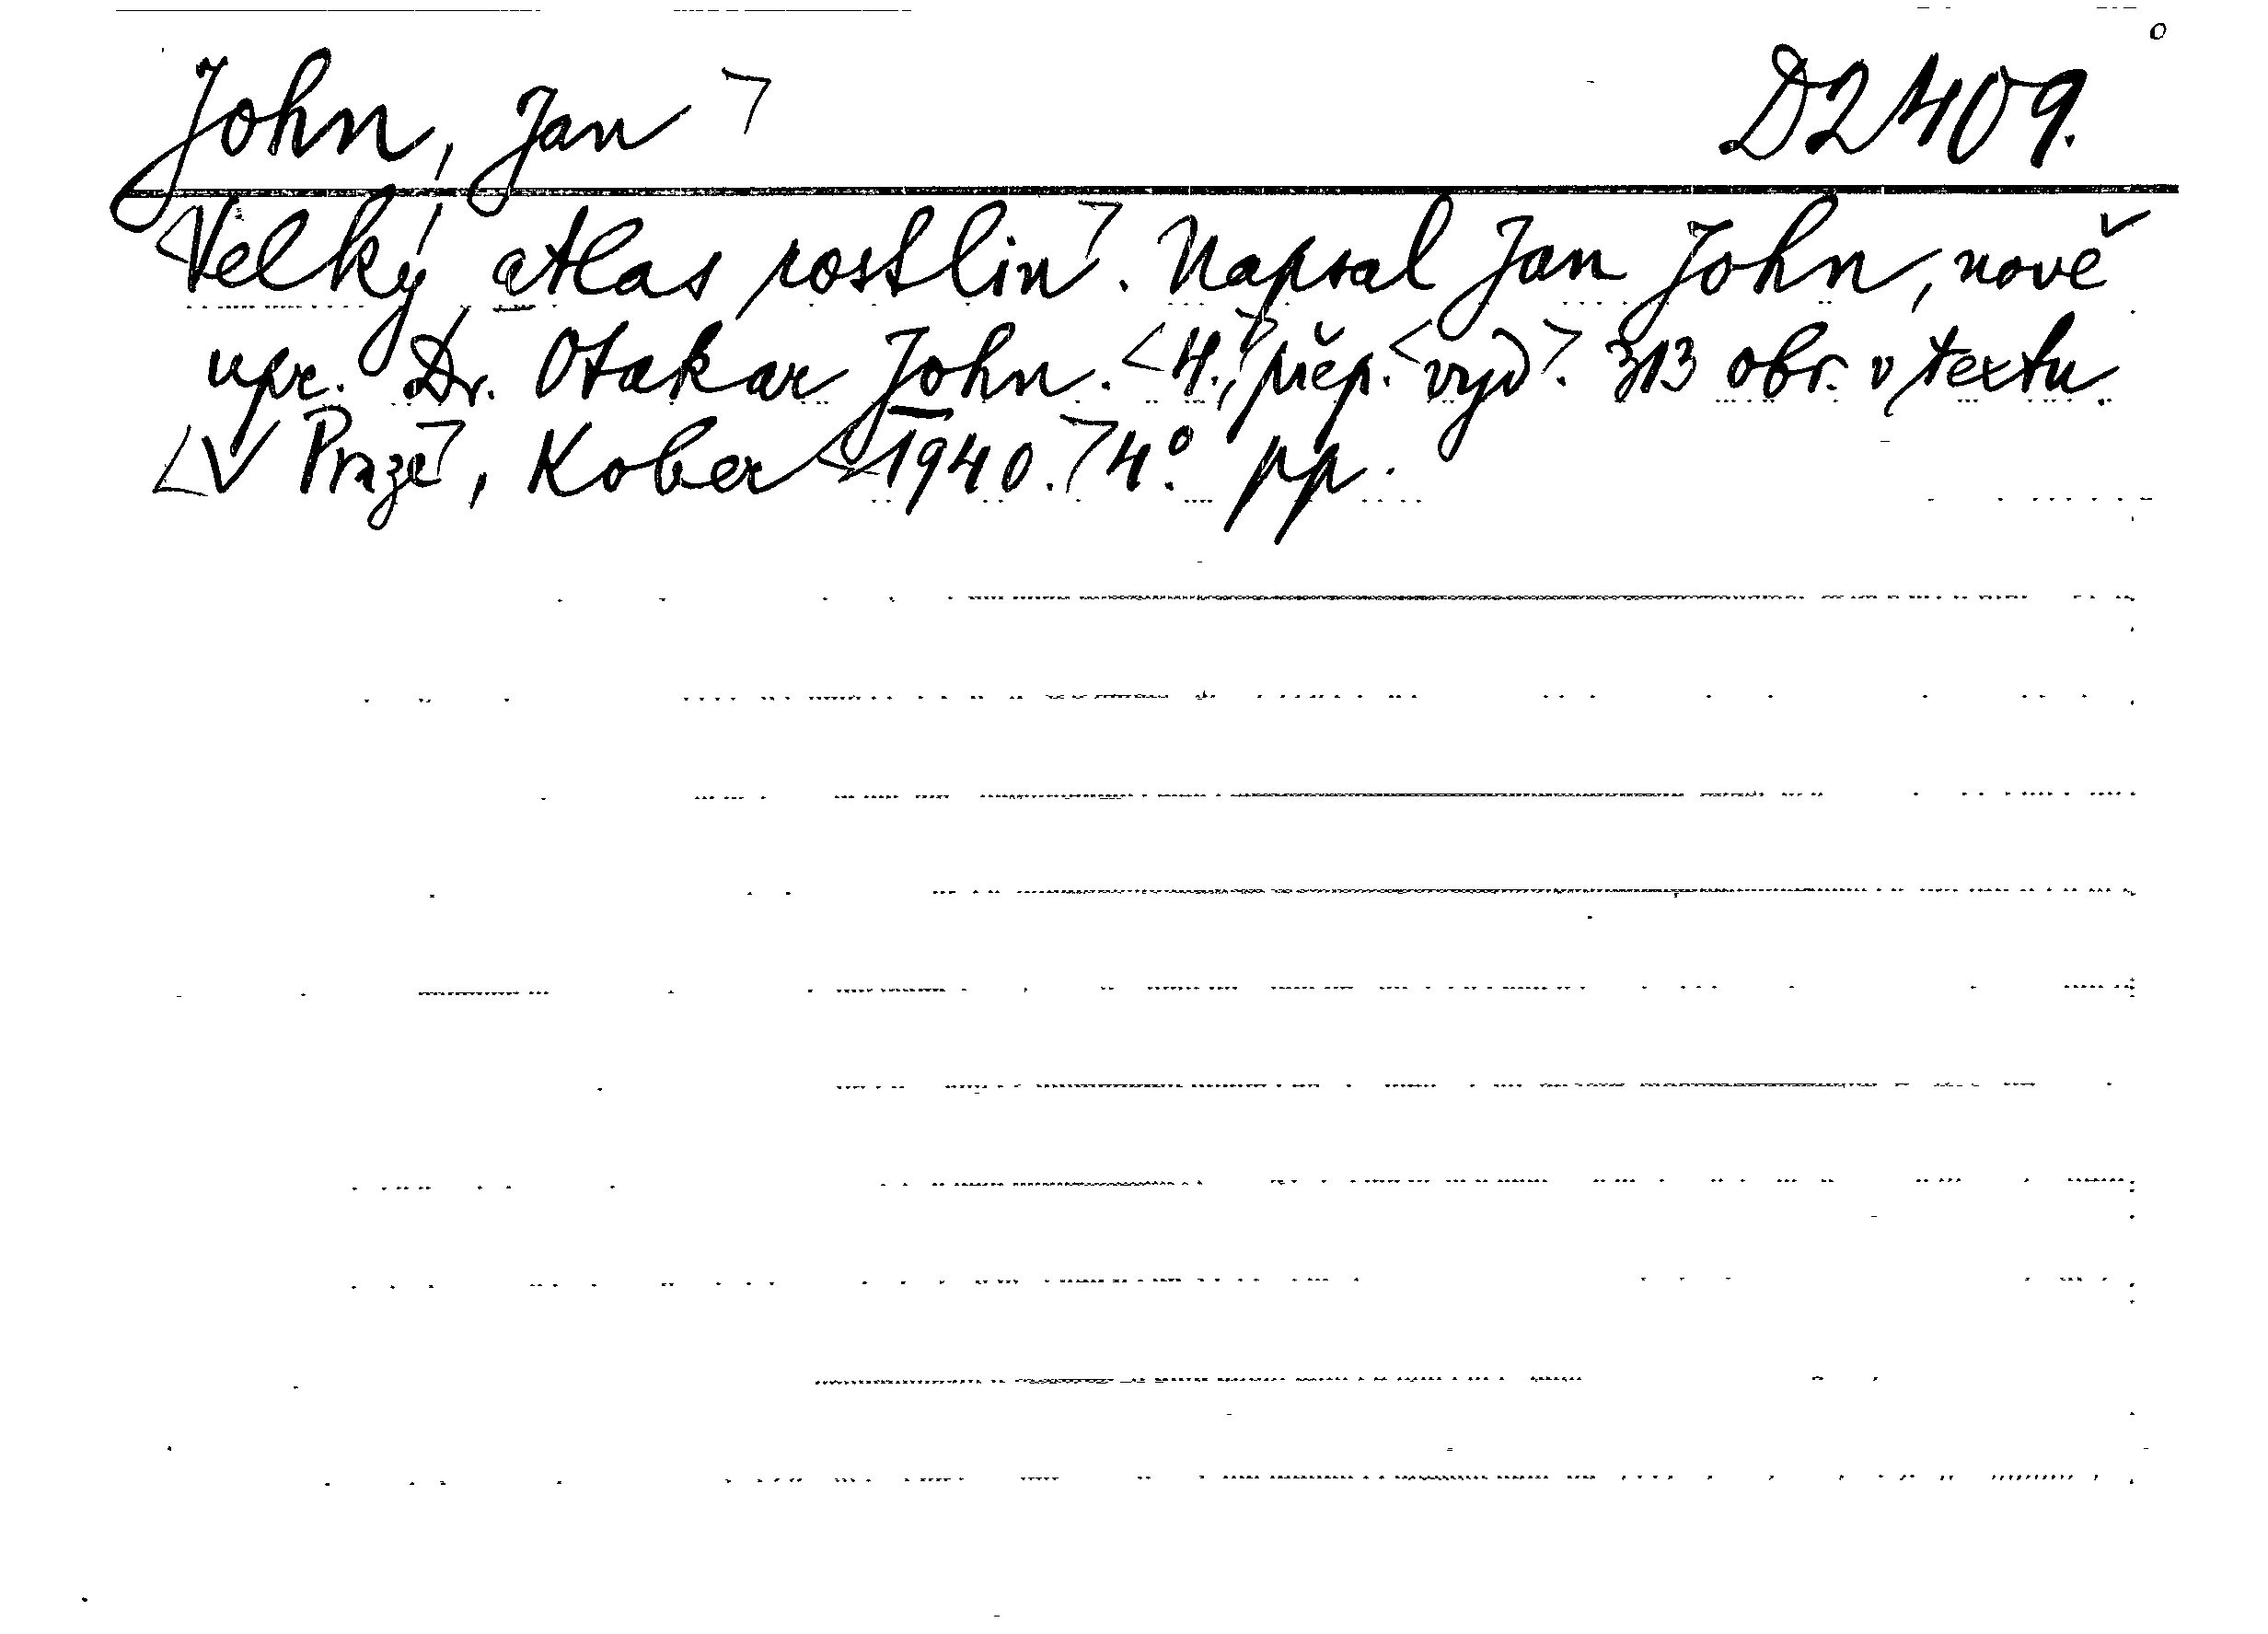 John, Jan D2409.
Velký atlas rostlin. Napsal Jan John, nově
upr. Dr. Otakar John. 4., přep. vyd. 313 obr. v textu.
V Praze, Kober 1940. 4° pp.